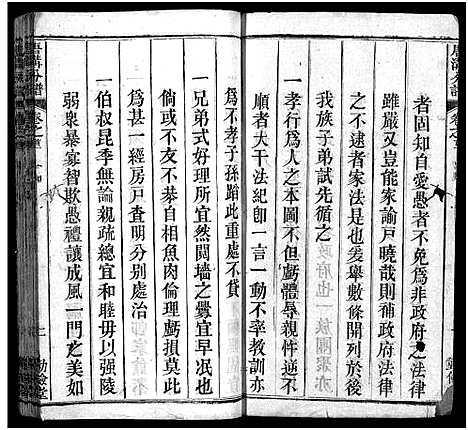 者固知自愛愚者不免爲非政府之法律
雖嚴又豈能家諭戶曉哉則補政府法律
之不逮者家法是也爰舉數條開列於後
我族子弟試先循之
一孝行爲人之本圖不但虧體辱親忤逆不
順者大干法紀卽一言一動不率教訓亦
爲不孝子孫蹈此重處不貸
一兄弟式好無尤然鬩墻之釁宜早有處分
倘或不友不恭自相魚肉倫理虧損莫此
爲甚一經房戶查明分別處治
一伯叔昆季無論親疏總宜和睦毋以强陵
弱衆暴寡智欺愚禮讓成風一門之美如